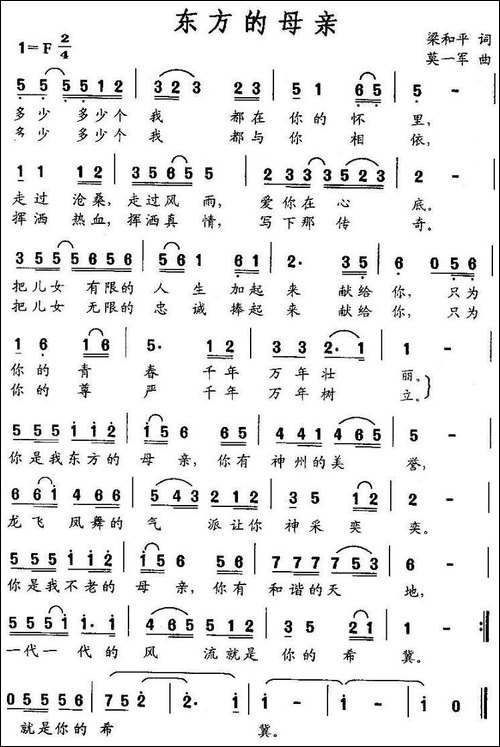 东方的母亲
1=F 2/4
梁和平 词
莫一军 曲
5 5 5 5 1 2 | 3 2 3 2 3 | 5 1 6 5 | 5 - |
多少 多少个 我 都在 你的 怀 里，
多少 多少个 我 都与 你 相 依，
1 1 1 2 | 3 5 5 6 5 | 2 3 3 3 5 2 3 | 2 - |
走过 沧桑，走过风 雨， 爱你在 心 底。
挥洒 热血，挥洒真 情， 写下那 传 奇。
3 5 5 5 6 5 5 | 5 6 1 6 1 | 2· 3 5 | 6 0 5 6 |
把儿女 有限的 人 生 加起 来 献给 你，只为
把儿女 无限的 忠 诚 捧起 来 献给 你，只为
1 6 1 6 | 5· 1 2 | 3 3 2· 1 | 1 - |
你的 青 春 千年 万年 壮 丽。
你的 尊 严 千年 万年 树 立。
5 5 5 5 1 1 2 | 1 5 6 6 5 | 4 4 1 4 6 5 | 5 - |
你是我东方的 母 亲，你有 神州的美 誉，
6 6 1 4 6 6 | 5 4 3 2 1 2 | 3 5 1 2 | 2 - |
龙飞 凤舞的 气 派让你 神采 奕 奕。
5 5 5 5 1 1 2 | 1 5 6 6 6 | 7 7 7 7 5 3 | 6 - |
你是我不老的 母 亲，你有 和谐的天 地，
5 5 5 1· 1 | 4 6 5 5 1 2 | 3 5 2 1 | 1 - :‖
一代一 代的 风 流就是 你的 希 冀。
0 5 5 5 6 | 7 5 2 2· | 2· 1 | 1 - | 1 0 ‖
就是你的 希 冀。